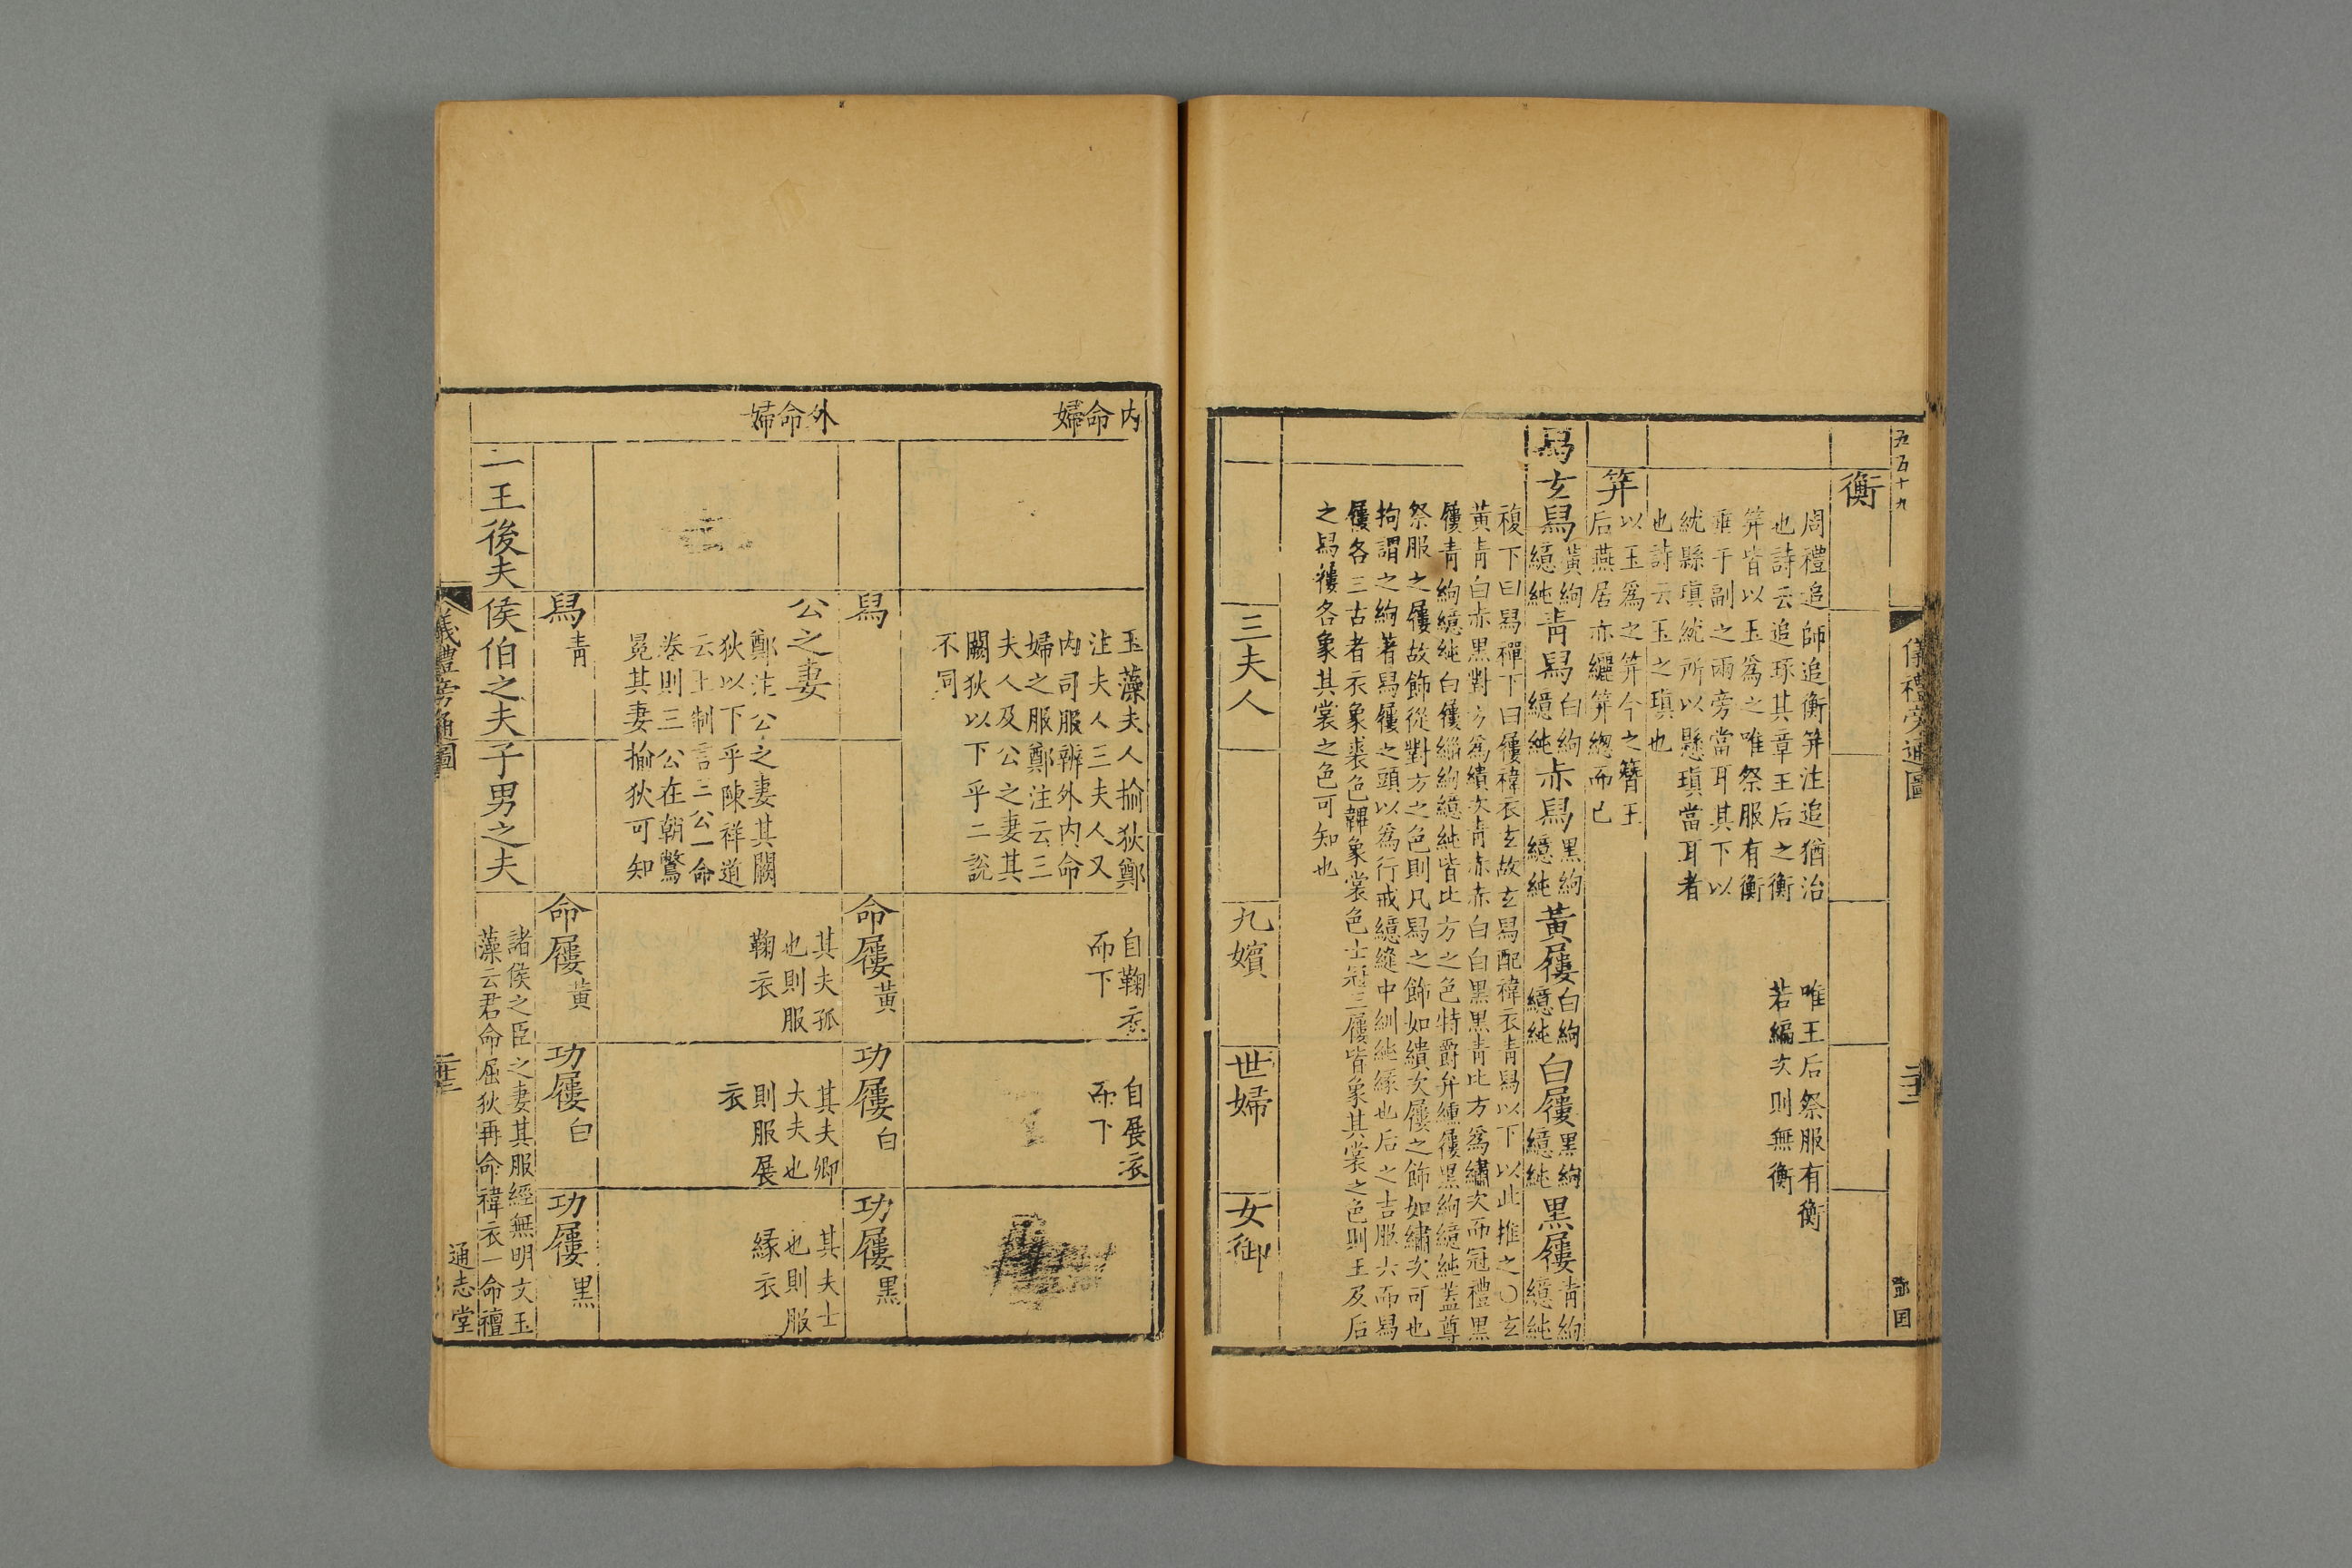 五百十九
儀禮旁通圖
衡
周禮追師追衡笄注追猶治
也詩云追琢其章王后之衡
笄皆以玉爲之唯祭服有衡
垂于副之兩旁當耳其下以
紞縣瑱紞所以懸瑱當耳者
也詩云玉之瑱也
唯王后祭服有衡
若編次則無衡
笄
以玉爲之笄今之簪王
后燕居亦纚笄緫而已
舄
玄舄
黃絇
繶純
青舄
白絇
繶純
赤舄
黑絇
繶純
黃屨
白絇
繶純
白屨
黑絇
繶純
黑屨
青絇
繶純
複下曰舄襌下曰屨褘衣玄故玄舄配褘衣青舄以下以此推之○玄
黃青白赤黑對方爲繢次青赤赤白白黑黑青比方爲繡次而冠禮黑
屨青絇繶純白屨緇絇繶純皆比方之色特爵弁纁屨黑絇繶純蓋尊
祭服之屨故飾從對方之色則凡舄之飾如繢次屨之飾如繡次可也
拘謂之絇著舄屨之頭以爲行戒繶縫中紃純緣也后之吉服六而舄
屨各三古者衣象裘色韠象裳色士冠三屨皆象其裳之色則王及后
之舄屨各象其裳之色可知也
三夫人
九嬪
世婦
女御
内命婦
玉藻夫人揄狄鄭
注夫人三夫人又
内司服辨外内命
婦之服鄭注云三
夫人及公之妻其
闕狄以下乎二説
不同
自鞠衣
而下
自展衣
而下
舄
命屨黃
功屨白
功屨黑
外命婦
公之妻
鄭注公之妻其闕
狄以下乎陳祥道
云王制言三公一命
卷則三公在朝鷩
冕其妻揄狄可知
其夫孤
也則服
鞠衣
其夫卿
大夫也
則服展
衣
其夫士
也則服
緣衣
舄青
命屨黃
功屨白
功屨黑
二王後夫
侯伯之夫
子男之夫
諸侯之臣之妻其服經無明文玉
藻云君命屈狄再命褘衣一命襢
儀禮旁通圖
通志堂